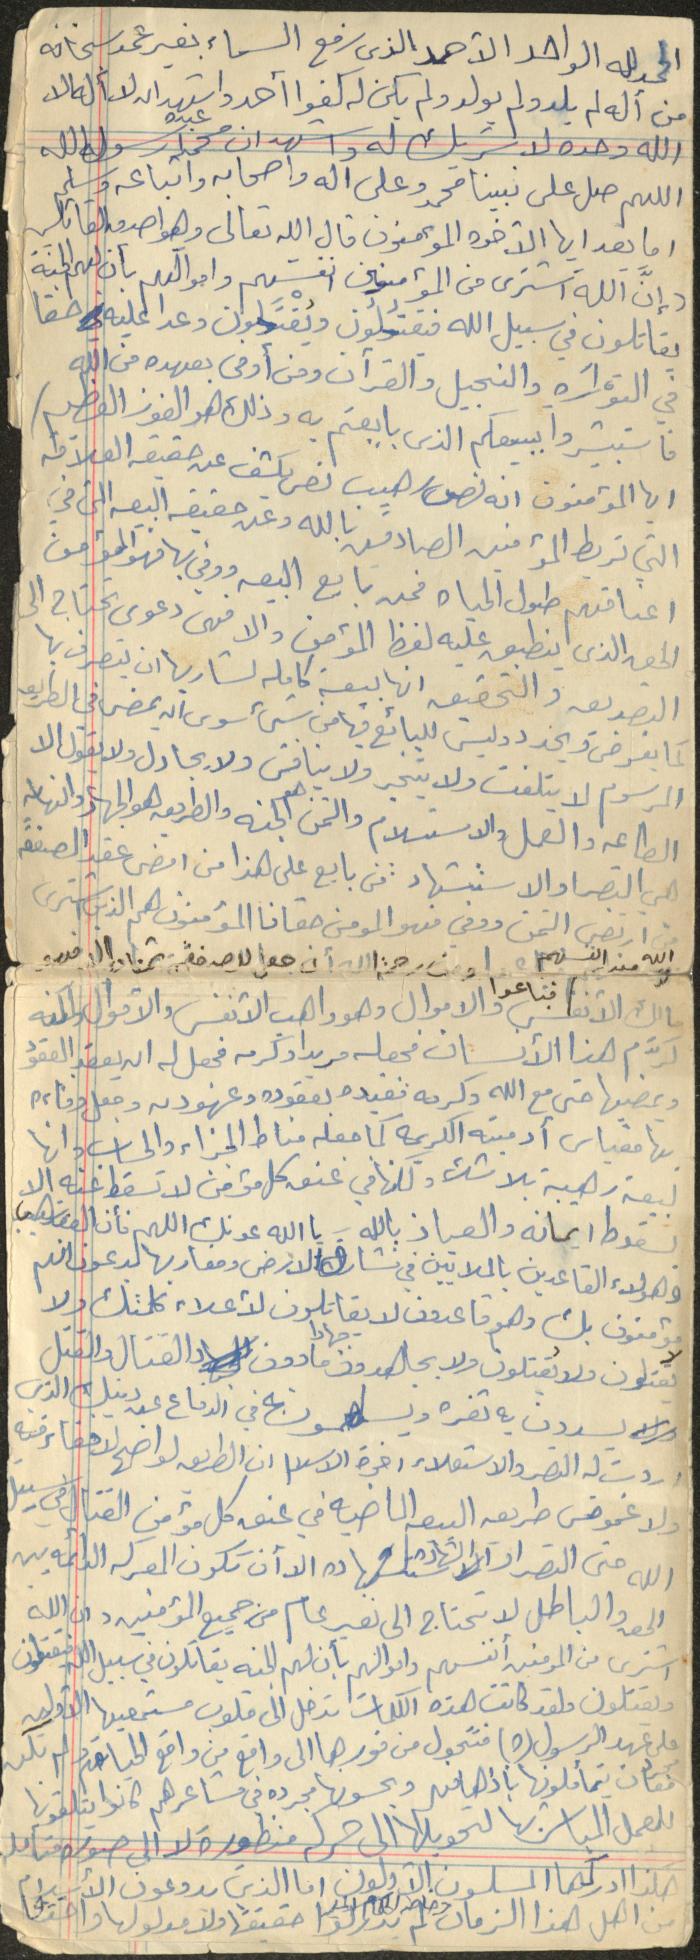 الحمد لله الواحد الأحد الذي رفع السماء بغير عمد سبحانه
من أله لم يلد ولم يولد ولم يكن له كفوا أحد واشهد ان لا أله الا
الله وحده لا شريك له واشهد ان محمدا عبده رسول الله
اللهم صل على نبينا محمد وعلى اله واصحابه واتباعه وسلم
اما بعد ايها الأخوه المؤمنون قال الله تعالى وهو اصدق القائلين
(إنَّ الله اشترى من المؤمنين انفسهم واموالهم بأن لهم الجنة
يقاتلون في سبيل الله فيَقتُلُون ويُقتَلون وعدا عليه حقا
في التوراه والانجيل والقرآن ومن أوفى بعهده من الله
فاستبشروا ببيعكم الذي بايعتم به وذلك هو الفوز العظيم)
ايها المؤمنون انه نص رهيب نص يكشف عن حقيقه العلاقه
التي تربط المؤمنين الصادقين بالله وعن حقيقه البيعه التي في
اعناقهم طول الحياه فمن بايع البيعه ووفى بها فهو المؤمن
الحق الذي ينطبق عليه لفظ المؤمن والا فهى دعوى تحتاج الى
التصديق والتحقيق انها بيعة كامله لشاريها ان يتصرف بها
كما يفرض ويحدد وليس للبائع فيها من شئ سوى أن يمضي في الطريق
المرسوم لا يتلفت ولا يتخير ولا يناقش ولا يجادل ولا يقول الا
الطاعه والعمل والاستسلام والثمن هو الجنه والطريق هو الجهاد والنهايه
هي النصر او الاستشهاد فمن بايع على هذا من امضى عقد الصفقة
من ارتضى الثمن ووفى فهو المؤمن حقا فالمؤمنون هم الذين اشترى
الله منهم انفسهم فباعوا ومن رحمة الله أن جعل للصفقة ثمنا والا فهو
مالك الأنفس والاموال وهو واهب الأنفس والأموال ولكنه
كرَّم هذا الأنسان فجعله مريدا وكرمه فجعل له ان يعقد العقود
ويمضيها حتى مع الله وكرمه فقيده بعقوده وعهوده وجعل وفاءه
بها مقياس أدميته الكريمه كما جعله مناط الجزاء والحساب وانها
لبيعة رهيبة بلا شك ولكنها في عنق كل مؤمن لا تسقط عنه الا
بسقوط ايمانه والعياذ بالله - يا الله عونك اللهم فأن العقد رهيب
وهولاء القاعدين بالملايين في مشارق الارض ومغاربها يدعون انهم
مؤمنون بك وهم قاعدون لا يقاتلون لأعلاء كلمتك ولا
يَقتلون ولا يُقتلون ولا يجاهدون جهادا مادون القتال والقتل
يسدون به ثغره ويسهمون به في الدفاع عن دينك الذي
اردت له النصر والاستعلاء اخوة الاسلام ان الطريق لواضح لا خفاء فيه
ولا غموض طريق البيعه الماضيه في عنق كل مؤمن القتال في سبيل
الله حتى النصر او الشهاده الا أن تكون المعركه الدائمه بين
الحق والباطل لا تحتاج الى نفير عام من جميع المؤمنين (ان الله
اشترى من المومنين أنفسهم واموالهم بأن لهم الجنه يقاتلون في سبيل الله فيقتلون
ويقتلون ولقد كانت هذه الكلمات تدخل الى قلوب مستمعيها الأولين
على عهد الرسول (ص) فتتحول من فورها الى واقع من واقع الحياة ولم تكن
معان يتأملونها بأذهانهم ويحسونها مجرده في مشاعرهم كانوا يتلقونها
للعمل المباشر بها لتحويلها الى حركه منظورة لا الى صورة متأمله
هكذا ادركها المسلمون الأولون اما الذين يدعون الأسلام
من اهل هذا الزمان لم يدركوا حقيقتها ولا مدلولها